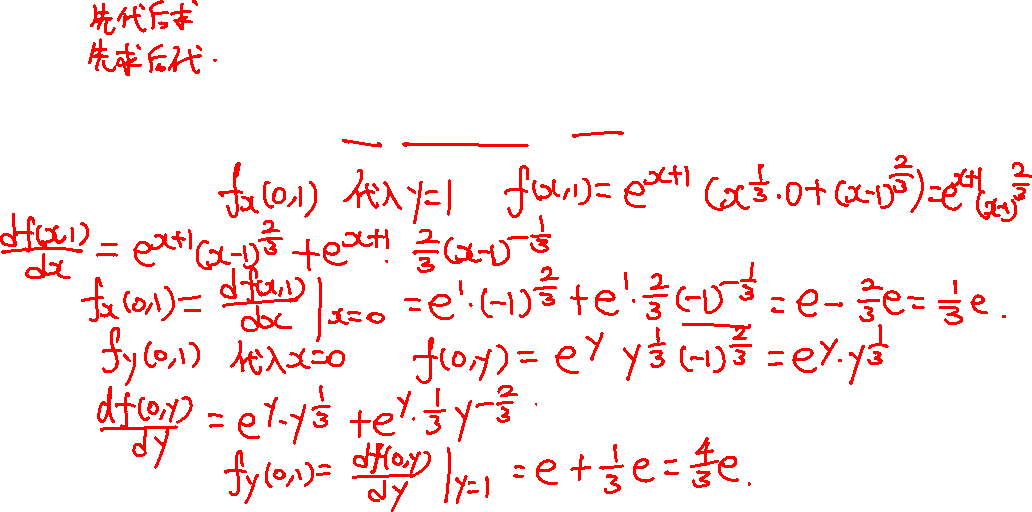 先代后求
先求后代.
fx(0,1) 代入y=1 f(x,1)=e^{x+1}(x^{1/3}·0+(x-1)^{2/3})=e^{x+1}(x-1)^{2/3}
df(x,1)/dx = e^{x+1}(x-1)^{2/3}+e^{x+1}·2/3(x-1)^{-1/3}
fx(0,1)=df(x,1)/dx|x=0 =e^1·(-1)^{2/3}+e^1·2/3(-1)^{-1/3}=e-2/3e=1/3e.
fy(0,1) 代入x=0 f(0,y)=e^y y^{1/3}(-1)^{2/3}=e^y·y^{1/3}
df(0,y)/dy =e^y·y^{1/3}+e^y·1/3y^{-2/3}.
fy(0,1)=df(0,y)/dy|y=1 =e+1/3e=4/3e.